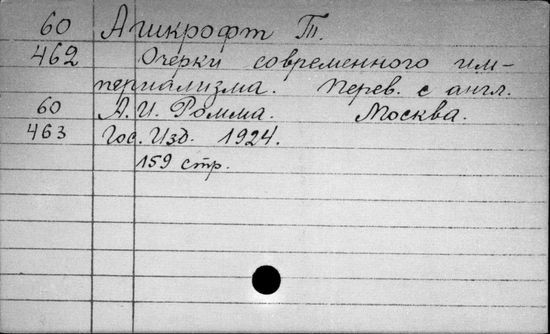 60 Ашкрофт Т.
462 Очерки современного им-
периализма. Перев. с англ.
60 А. И. Ромма. Москва.
463 Гос. Изд. 1924.
159 стр.